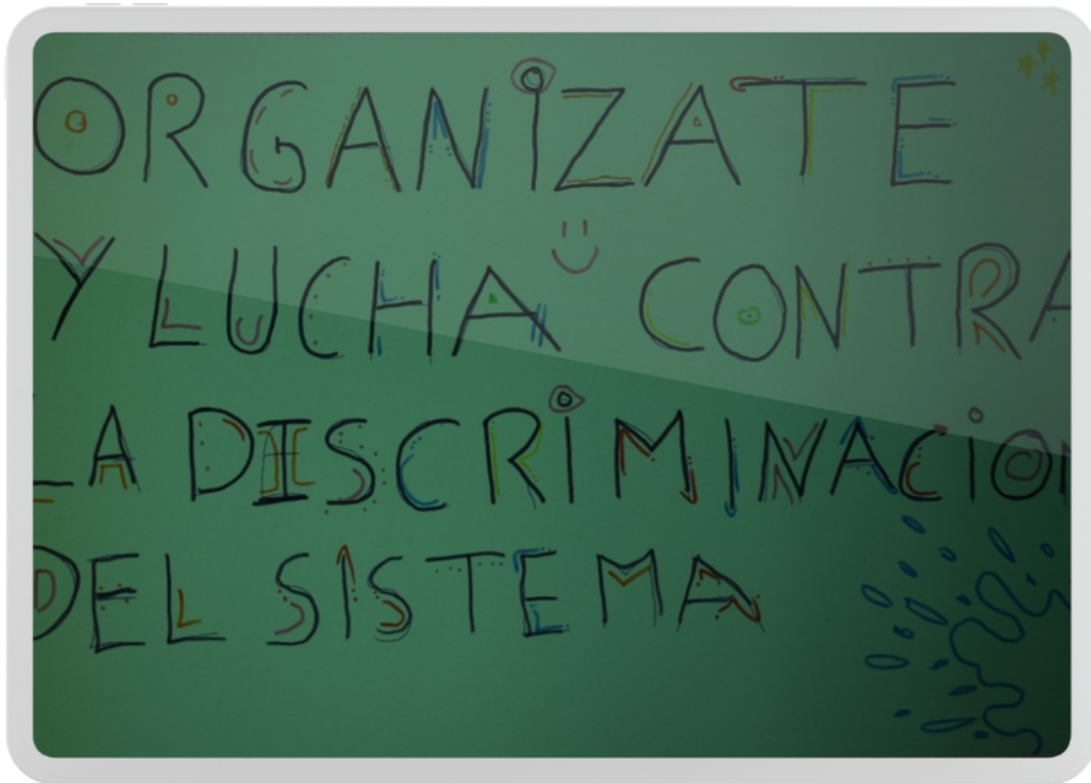 ORGANIZATE
Y LUCHA CONTRA
LA DISCRIMINACION
DEL SISTEMA